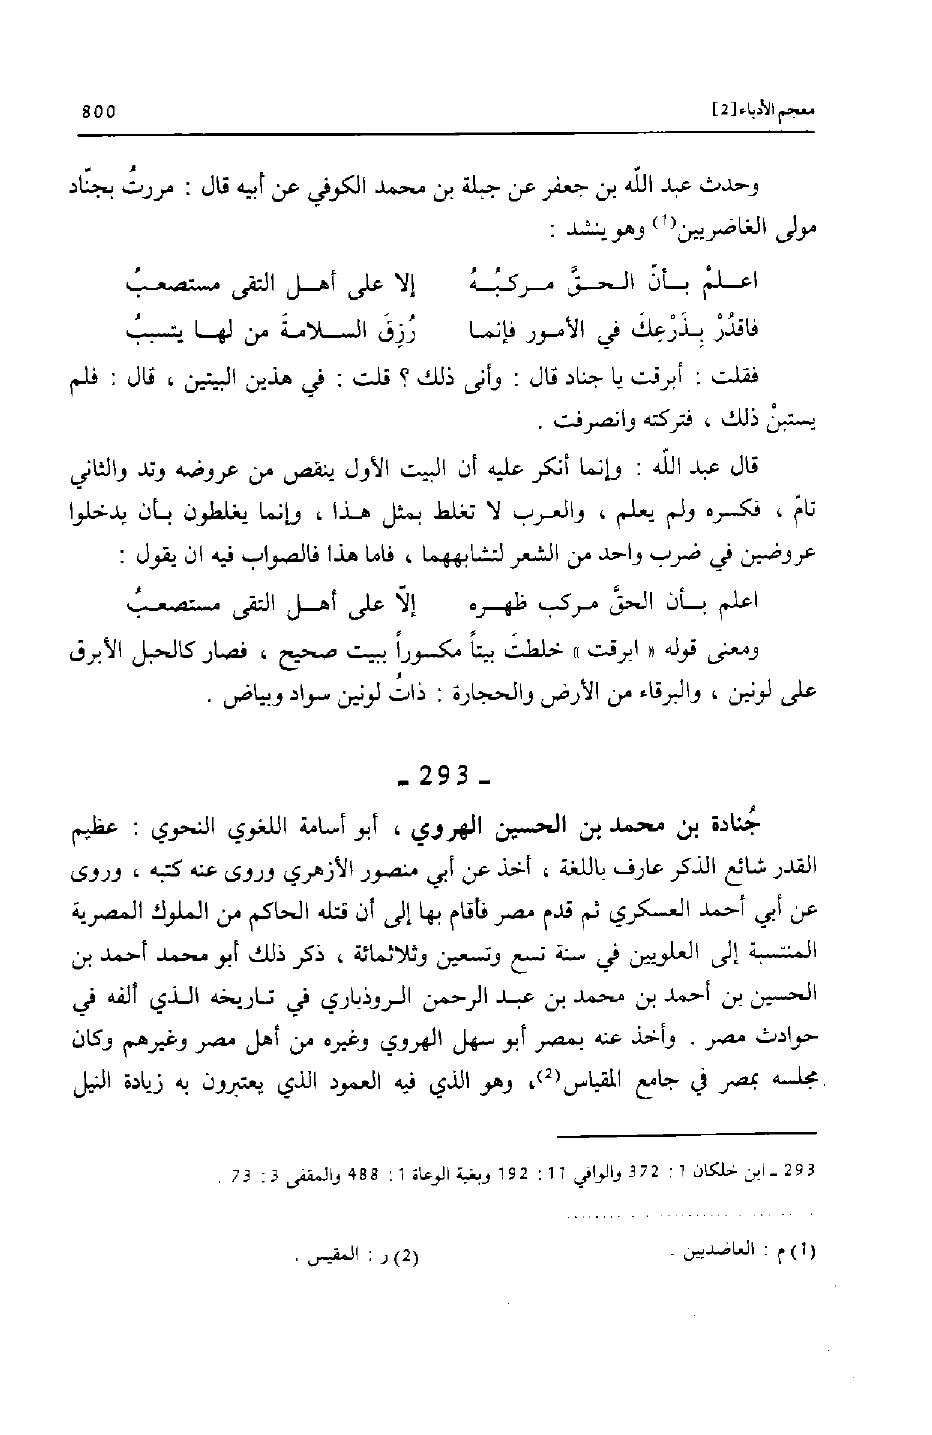 معجم الأدباء [2] 800
وحدث عبد الله بن جعفر عن جبلة بن محمد الكوفي عن أبيه قال : مررتُ بجنّاد
مولى الغاضريين(1) وهو ينشد :
اعلمْ بأنّ الحقّ مركبُهُ إلا على أهل التقى مستصعبُ
فاقدُرْ بِذَرْعِكَ في الأمور فإنما رُزِقَ السلامةَ من لها يتسببُ
فقلت : أبرقت يا جناد قال : وأنى ذلك ؟ قلت : في هذين البيتين ، قال : فلم
يستبنْ ذلك ، فتركته وانصرفت .
قال عبد الله : وإنما أنكر عليه أن البيت الأول ينقص من عروضه وتد والثاني
تامّ ، فكسره ولم يعلم ، والعرب لا تغلط بمثل هذا ، وإنما يغلطون بأن يدخلوا
عروضين في ضرب واحد من الشعر لتشابههما ، فاما هذا فالصواب فيه ان يقول :
اعلم بأن الحقّ مركب ظهره إلاّ على أهل التقى مستصعبُ
ومعنى قوله « ابرقت » خلطتَ بيتاً مكسوراً ببيت صحيح ، فصار كالحبل الأبرق
على لونين ، والبرقاء من الأرض والحجارة : ذاتُ لونين سواد وبياض .
- 293 -
جُنادة بن محمد بن الحسين الهروي ، أبو أسامة اللغوي النحوي : عظيم
القدر شائع الذكر عارف باللغة ، أخذ عن أبي منصور الأزهري وروى عنه كتبه ، وروى
عن أبي أحمد العسكري ثم قدم مصر فأقام بها إلى أن قتله الحاكم من الملوك المصرية
المنتسبة إلى العلويين في سنة تسع وتسعين وثلاثمائة ، ذكر ذلك أبو محمد أحمد بن
الحسين بن أحمد بن محمد بن عبد الرحمن الروذباري في تاريخه الذي ألفه في
حوادث مصر . وأخذ عنه بمصر أبو سهل الهروي وغيره من أهل مصر وغيرهم وكان
مجلسه بمصر في جامع المقياس(2)، وهو الذي فيه العمود الذي يعتبرون به زيادة النيل
293 - ابن خلكان 1 : 372 والوافي 11 : 192 وبغية الوعاة 1 : 488 والمقفى 3 : 73 .
(1) م : العاضديين . (2) ر : المقيس .